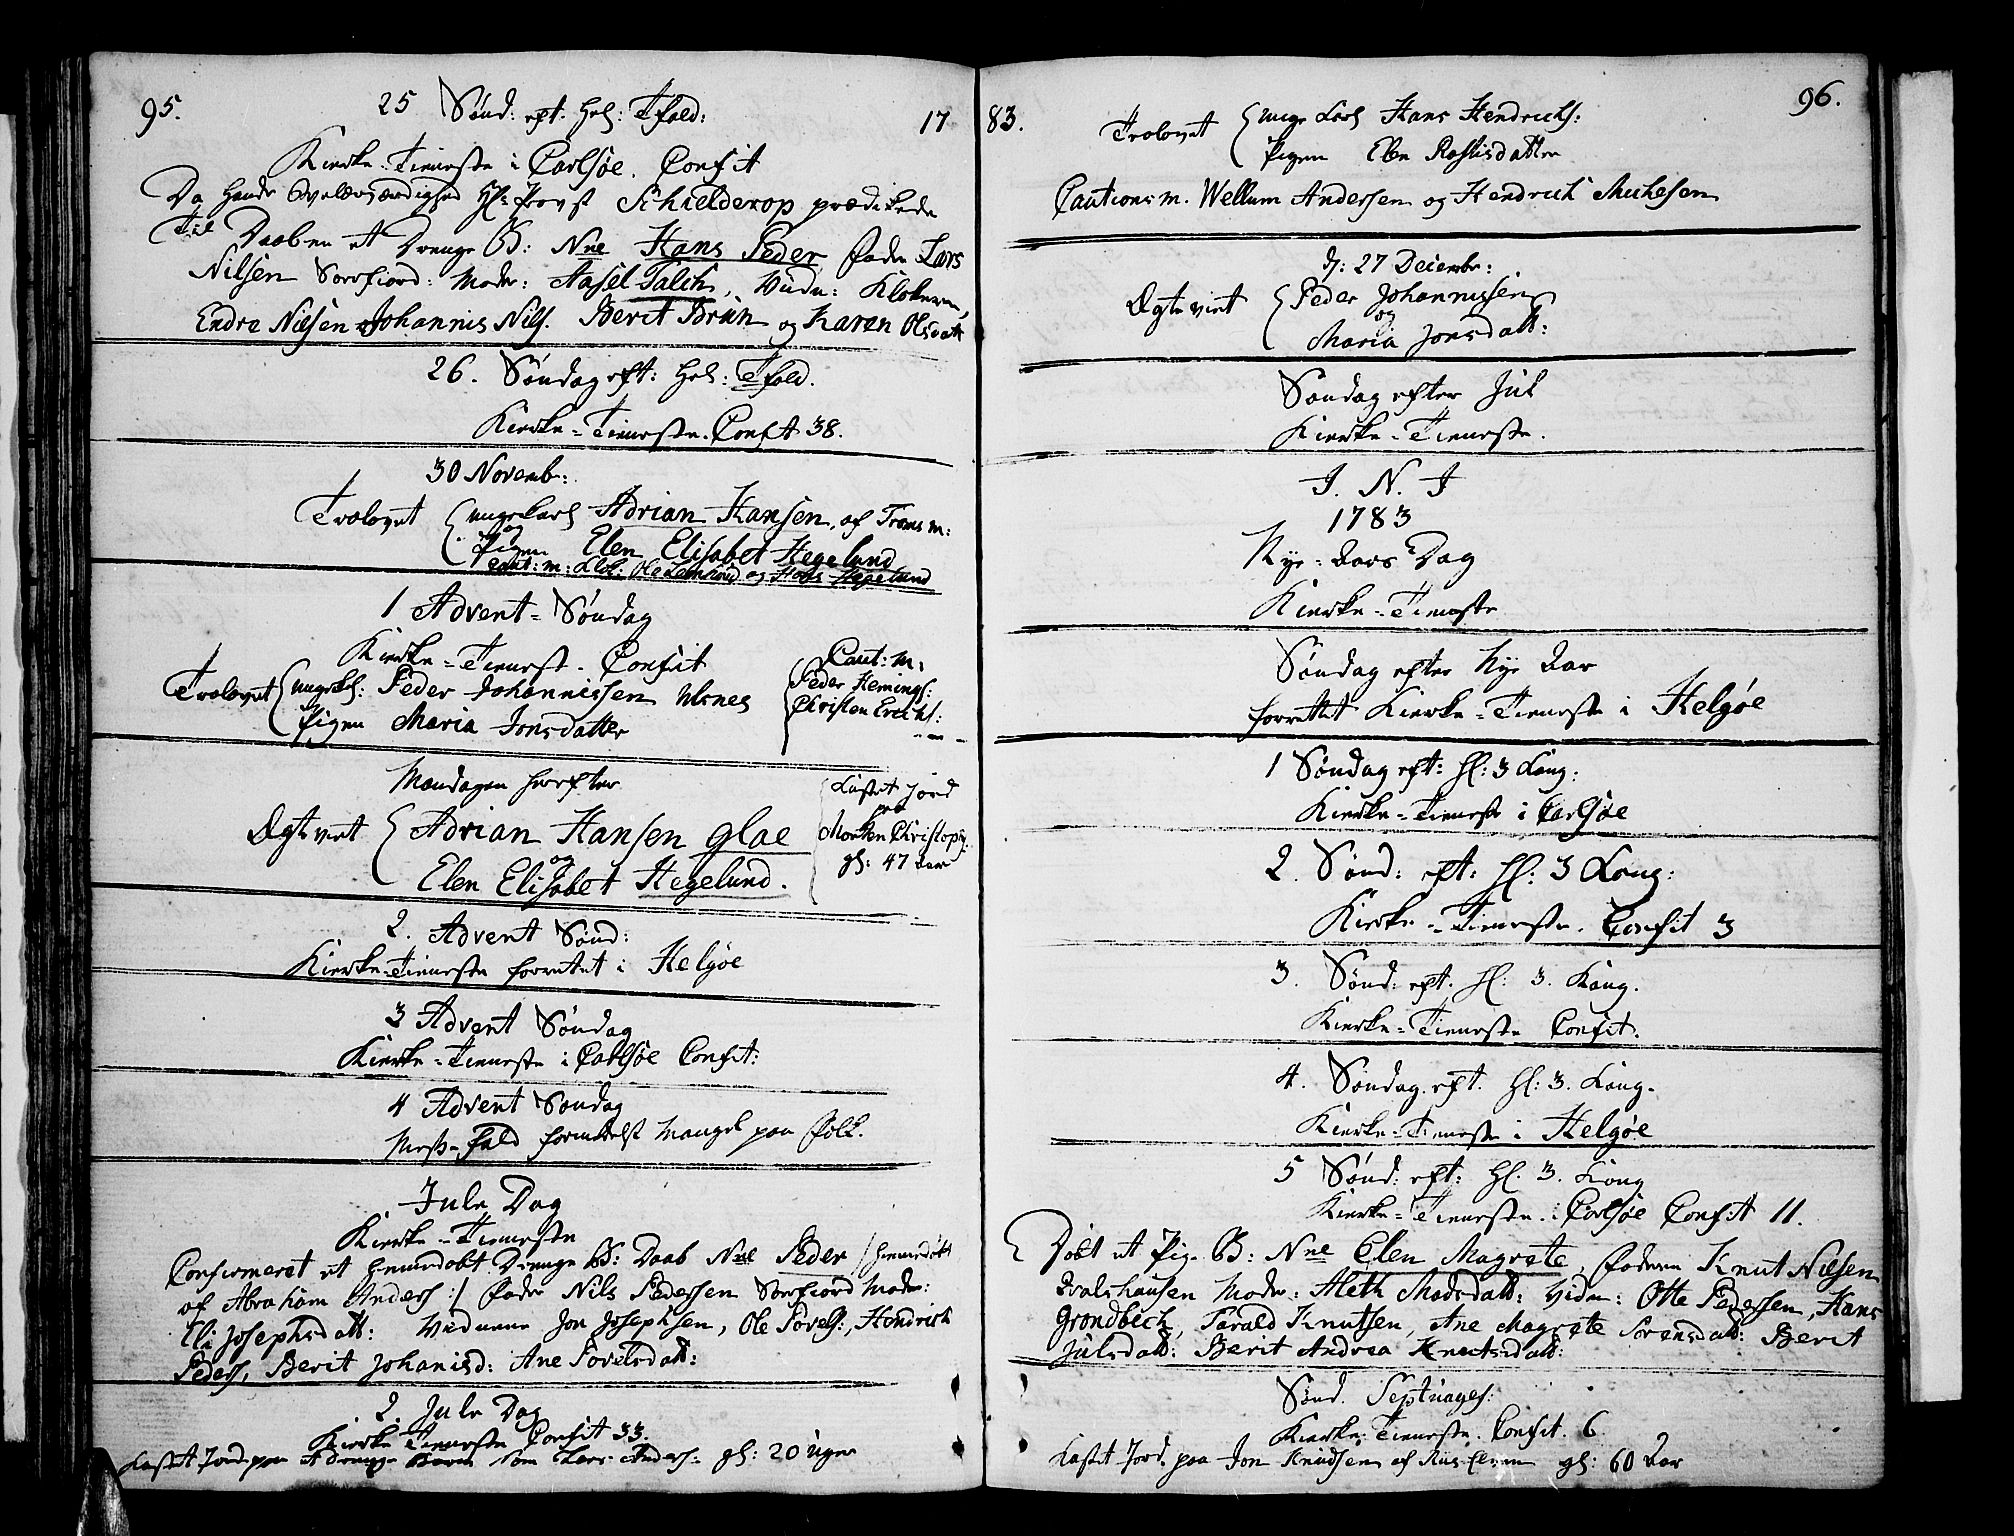 95.
25 Sønd: eft. Hel: Tfold:
17
Kierke-Tieneste i Carlsøe. Confit
Da Hands Velærværdighed Hr: Provst Schielderop prædikede
Til Daaben et Drenge B: Nne Hans Peder, Fader Lars
Nilsen Sorfiord: Moder: Aasel Falch, Vidn: Klokeren,
Endre Nielsen Johannis Nils. Berit Brun og Karen Olsdatt
26. Søndag eft: Hel: Tfold.
Kierke-Tieneste. Confit 38.
30 Novemb:
Trolovet Ungekarl Adrian Hansen, af Troms m:
og
Pigen Elen Elisabet Hegelund
Caut: m: Klok: Ole og Hans Hegelund
1 Advent-Søndag
Kierke-Tienest. Confit
Trolovet Ungekl: Peder Johannissen Ulsnes
Pigen Maria Jonsdatter
Caut: M:
Peder Hemings:
Christen Erichs:
Mandagen herefter
Ægteviet Adrian Hansen Glae
og
Elen Elisabet Hegelund.
Kastet Jord
paa
Morten Christoph:
gl: 47 Aar
2. Advent Sønd:
Kierke-Tieneste forrettet i Helgøe
3 Advent Søndag
Kierke-Tieneste i Carlsøe Confit:
4 Advent Søndag
Mess-fald formedelst Mangel paa Folk.
Jule Dag
Kierke-Tieneste
Confirmeret et hiemedøbt Drenge B: Daab Nne Peder /: hiemedøbt
af Abraham Anders :/ Fader Nils Pedersen Sorfiord Moder:
Eli Josephsdatt: Vidnene Jon Josephsen, Ole Povels:, Hendrich
Peders, Berit Johanisd: Ane Povelsdatt:
2. Jule Dag
Kierke Tieneste Confit 33.
Kastet Jord paa et Drenge Barn Lars Anders: gl: 20 Uger
83.
96.
Trolovet Unge Karl Hans Hendrichs:
Pigen Elen Rasmusdatter
Cautions m. Wellum Andersen og Hendrich Michelsen
d: 27 Decembr:
Ægteviet Peder Johannissen
og
Maria Jonsdatt:
Søndag efter Jul
Kierke-Tieneste.
I. N. J
1783
Nye-Aars Dag
Kierke-Tieneste
Søndag efter Nye Aar
forrettet Kierke-Tieneste i Helgøe
1 Søndag eft: Hl: 3 Kong:
Kierke-Tieneste i Carlsøe
2. Sønd: eft: Hl: 3 Kong:
Kierke-Tieneste. Confit 3
3. Sønd: eft. Hl: 3. Kong.
Kierke-Tieneste Confit.
4. Søndag eft. Hl: 3. Kong.
Kierke-Tieneste i Helgøe
5 Sønd: eft: Hl. 3. Kong
Kierke-Tieneste. i Carlsøe Confit 11.
Døbt et Pige B: Nne Elen Magrete, Faderen Knut Nielsen
Moder: Aleth Madsdatt: Vidn: Otte Pedersen, Hans
Grondbech, Farald Knutsen, Ane Magrete Sørensdatt: Berit
Julsdatt: Berit Andrea Knutsdatt:
Sønd. Septuages:
Kierke-Tieneste. Confit. 6
Kastet Jord paa Jon Knudsen af gl: 60 Aar